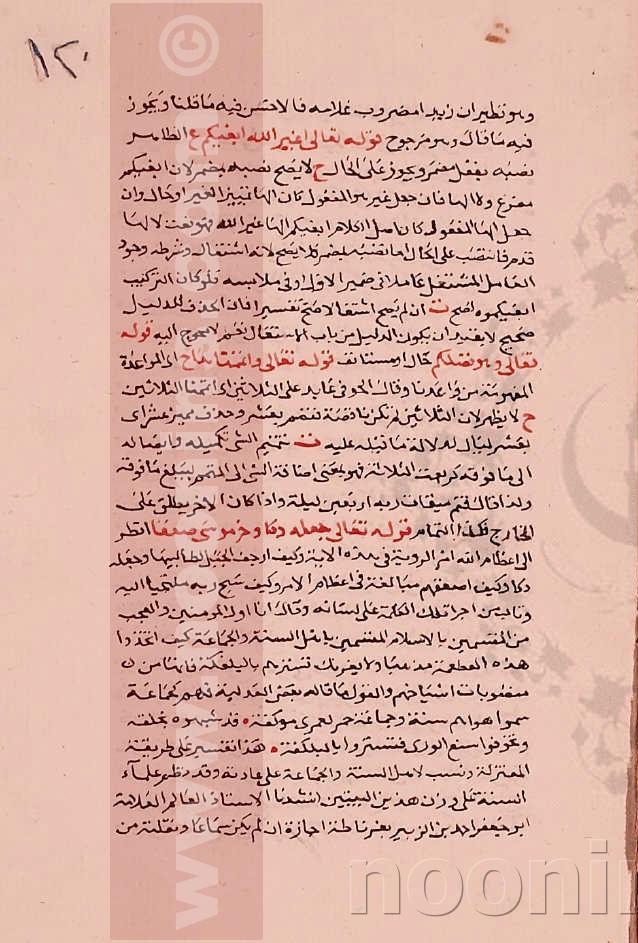 ١٢٠
وهو نظير ان زيد امضروب غلامه فالاحسن فيه ما قلنا ويجوز
فيه ما قال وهو مرجوح قوله تعالى اغير الله ابغيكم ع الظاهر
نصبه بفعل مضمر ويجوز على الحال ح لا يصح نصبه بمضمر لان ابغيكم
مفرغ والها فان جعل غير هو المفعول كان الها تمييز الغير او حال وان
جعل الها المفعول كان اصل الكلام ابغيكم الها غير الله فهو نعت لالها
قدم فانتصب على الحال اما نصبه بمضمر فلا يصح لانه اشتغال وشرطه وجود
العامل المشتغل عاملا في ضمير الاول او في ملابسه فلو كان التركيب
ابغيكموه لصح ت ان لم يصح اشتغالا صح تفسيرا فان الحذف للدليل
صحيح لا بقيد ان يكون الدليل من باب الاشتغال نعم لا محوج اليه قوله
تعالى وهو فضلكم حال او مستانف قوله تعالى واتممناها ح اي المواعدة
المفهومة من واعدنا وقال الحوفي عايد على الثلاثين اي اتممنا الثلاثين
ح لا يظهر لان الثلاثين لم تكن ناقصة فتتمم بعشر وحذف مميز عشر اي
بعشر ليال لدلالة ما قبله عليه ت تتميم الشي تكميله وايصاله
الى ما فوقه كربعت الثلاثة فهو بمعنى اضافة الشي الى المتمم ليبلغ ما فوقه
ولذا قال فتم ميقات ربه اربعين ليلة واذا كان الاخر يطلق على
الخارج فكذا التمام قوله تعالى جعله دكا وخر موسى صعقا انظر
الى اعظام الله امر الروية في هذه الاية وكيف ارجف الجبل بطالبيها وجعله
دكا وكيف اصعقهم مبالغة في اعظام الامر وكيف سبح ربه ملتجيا اليه
وتاب من اجرا تلك الكلمة على لسانه وقال انا اول المومنين والعجب
من المتسمين بالاسلام المتسمين باهل السنة والجماعة كيف اتخذوا
هذه العظمة مذهبا ولا يغرنك تسترهم بالبلكفة فانها من
منصوبات اشياخهم والقول ما قاله بعض العدلية فيهم لجماعة
سموا هواهم سنة وجماعة حمر لعمري موكفة ٥ قد شبهوه بخلقه
وتخوفوا شنع الورى فتستروا بالبلكفة ٥ هذا تفسير على طريقة
المعتزلة ونسب لاهل السنة والجماعة على عادته وقد نظم علماء
السنة على وزن هذين البيتين انشدنا الاستاذ العالم العلامة
ابو جعفر احمد بن الزبير بغرناطة اجازة ان لم يكن سماعا ونقلته من